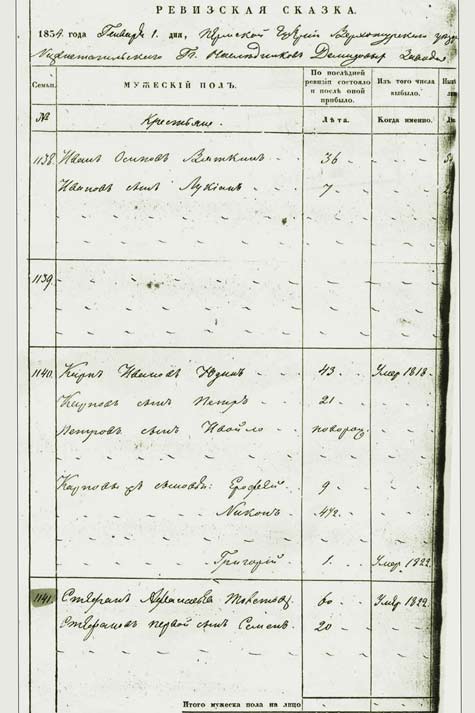 РЕВИЗСКАЯ СКАЗКА.
1834 года Генваря 1. дня, Пермской Губернии Верхотурского
Нижнетагильского Гг. Наследников Демидовых Завода
Семьи. МУЖЕСКІЙ ПОЛЪ. По послѣдней ревизіи состояло и послѣ оной прибыло. Изъ того числа выбыло.
№ Крестьяне Лѣта. Когда именно.
1138. Иванъ Осиповъ Вяткинъ 36
Ивановъ сынъ Лукіанъ 7
1139.
1140. Карпъ Ивановъ Юдинъ 43 Умер. 1818.
Карповъ сынъ Петръ 21
Петровъ сынъ
Карповы сыновья: Ерофей 9
Никонъ
Григорій 1. Умер. 1822.
1141. Степанъ 60 Умер. 1822.
Степановъ первой сынъ Семенъ 20
Итого мужеска пола на лицо